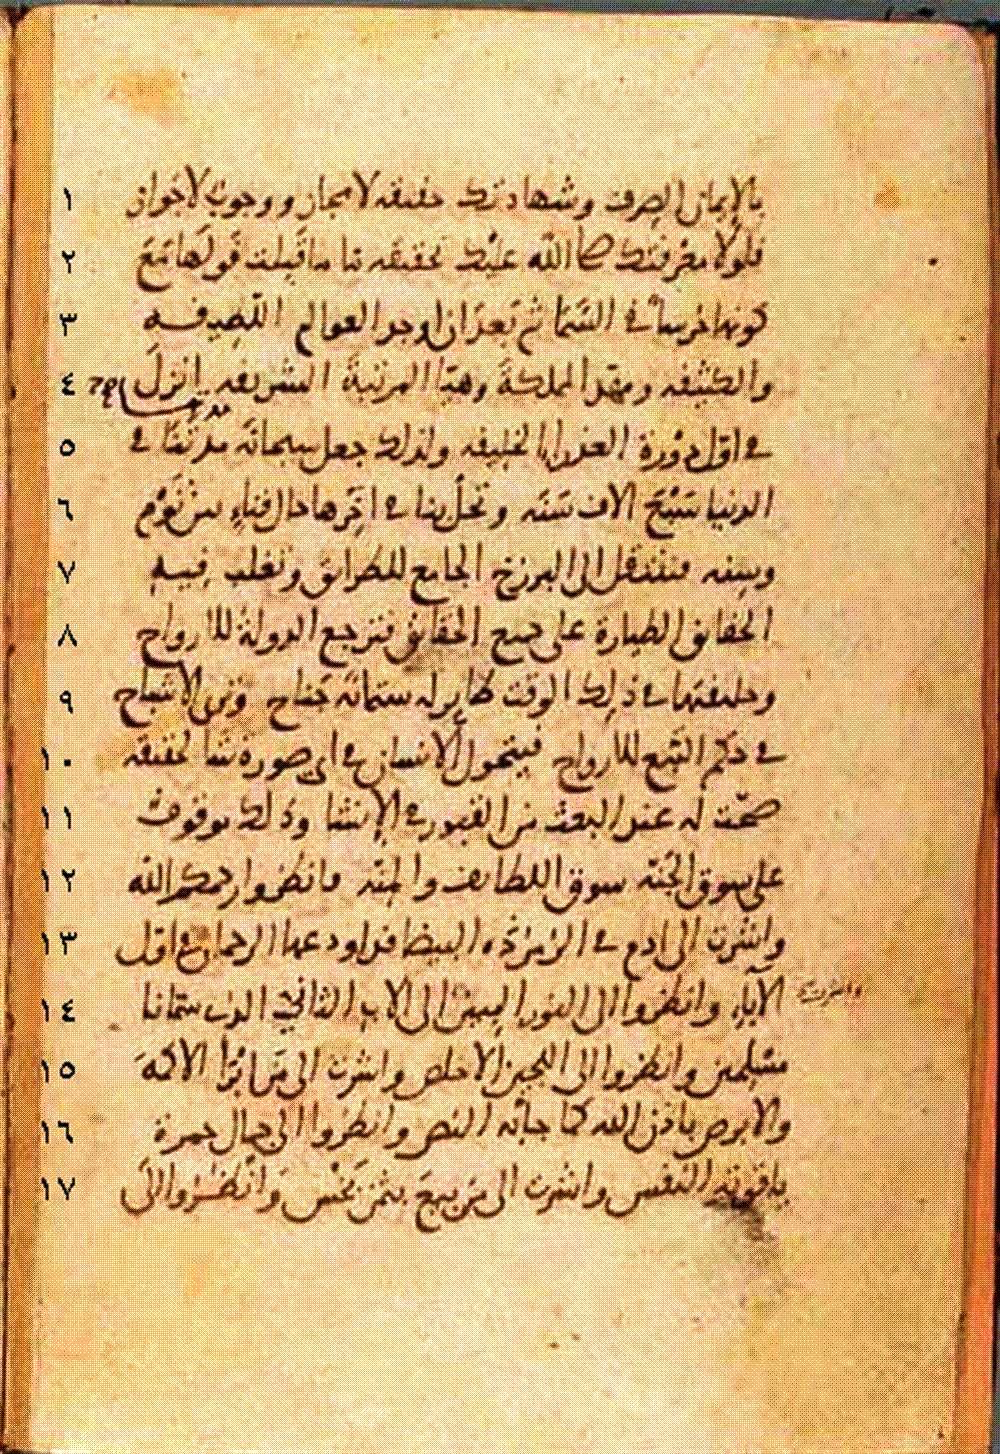 بالإيمان الصرف وشهادتك حقيقه لا مجاز ووجوب لا جواز
فلولا معرفتك صلى الله عليك بحقيقه ما ما قبلت قولها مع
كونها خرساء في السما ثم بعد ان اوجد العوالم اللطيفه
والكثيفه ومهد المملكة وهيا المرتبة الشريفه انزل
في اول دورة العذرا الخليفه ولذلك جعل سبحانه مدتنا في
الدنيا سبع الاف سنه وتحل بنا في اخرها حال فناء بين نوم
وسنه فننتقل الى البرزخ الجامع للطرائق وتغلب فيه
الحقائق الطيارة على جميع الحقائق فترجع الدولة للارواح
وخليفتها في ذلك الوقت طاير له ستمائه جناح وترى الاشباح
في حكم التبع للارواح فيتحول الانسان في اي صورة شا لحقيقه
صحت له عند البعث من القبور في الانشا وذلك موقوف
على سوق الجنه سوق اللطايف والمنه فانظروا رحمكم الله
واشرت الى ادم في الزمردة البيضا قد اودعها الرحمان في اول
الآباء وانظروا الى النور المبين واشرت الى الاب الثاني الذي سمانا
مسلمين وانظروا الى اللجين الاخلص واشرت الى من ابرا الاكمه
والابرص باذن الله كما جا به النص وانظروا الى جمال حمرة
ياقوتة النفس واشرت الى من بيع بثمن بخس وانظروا الى